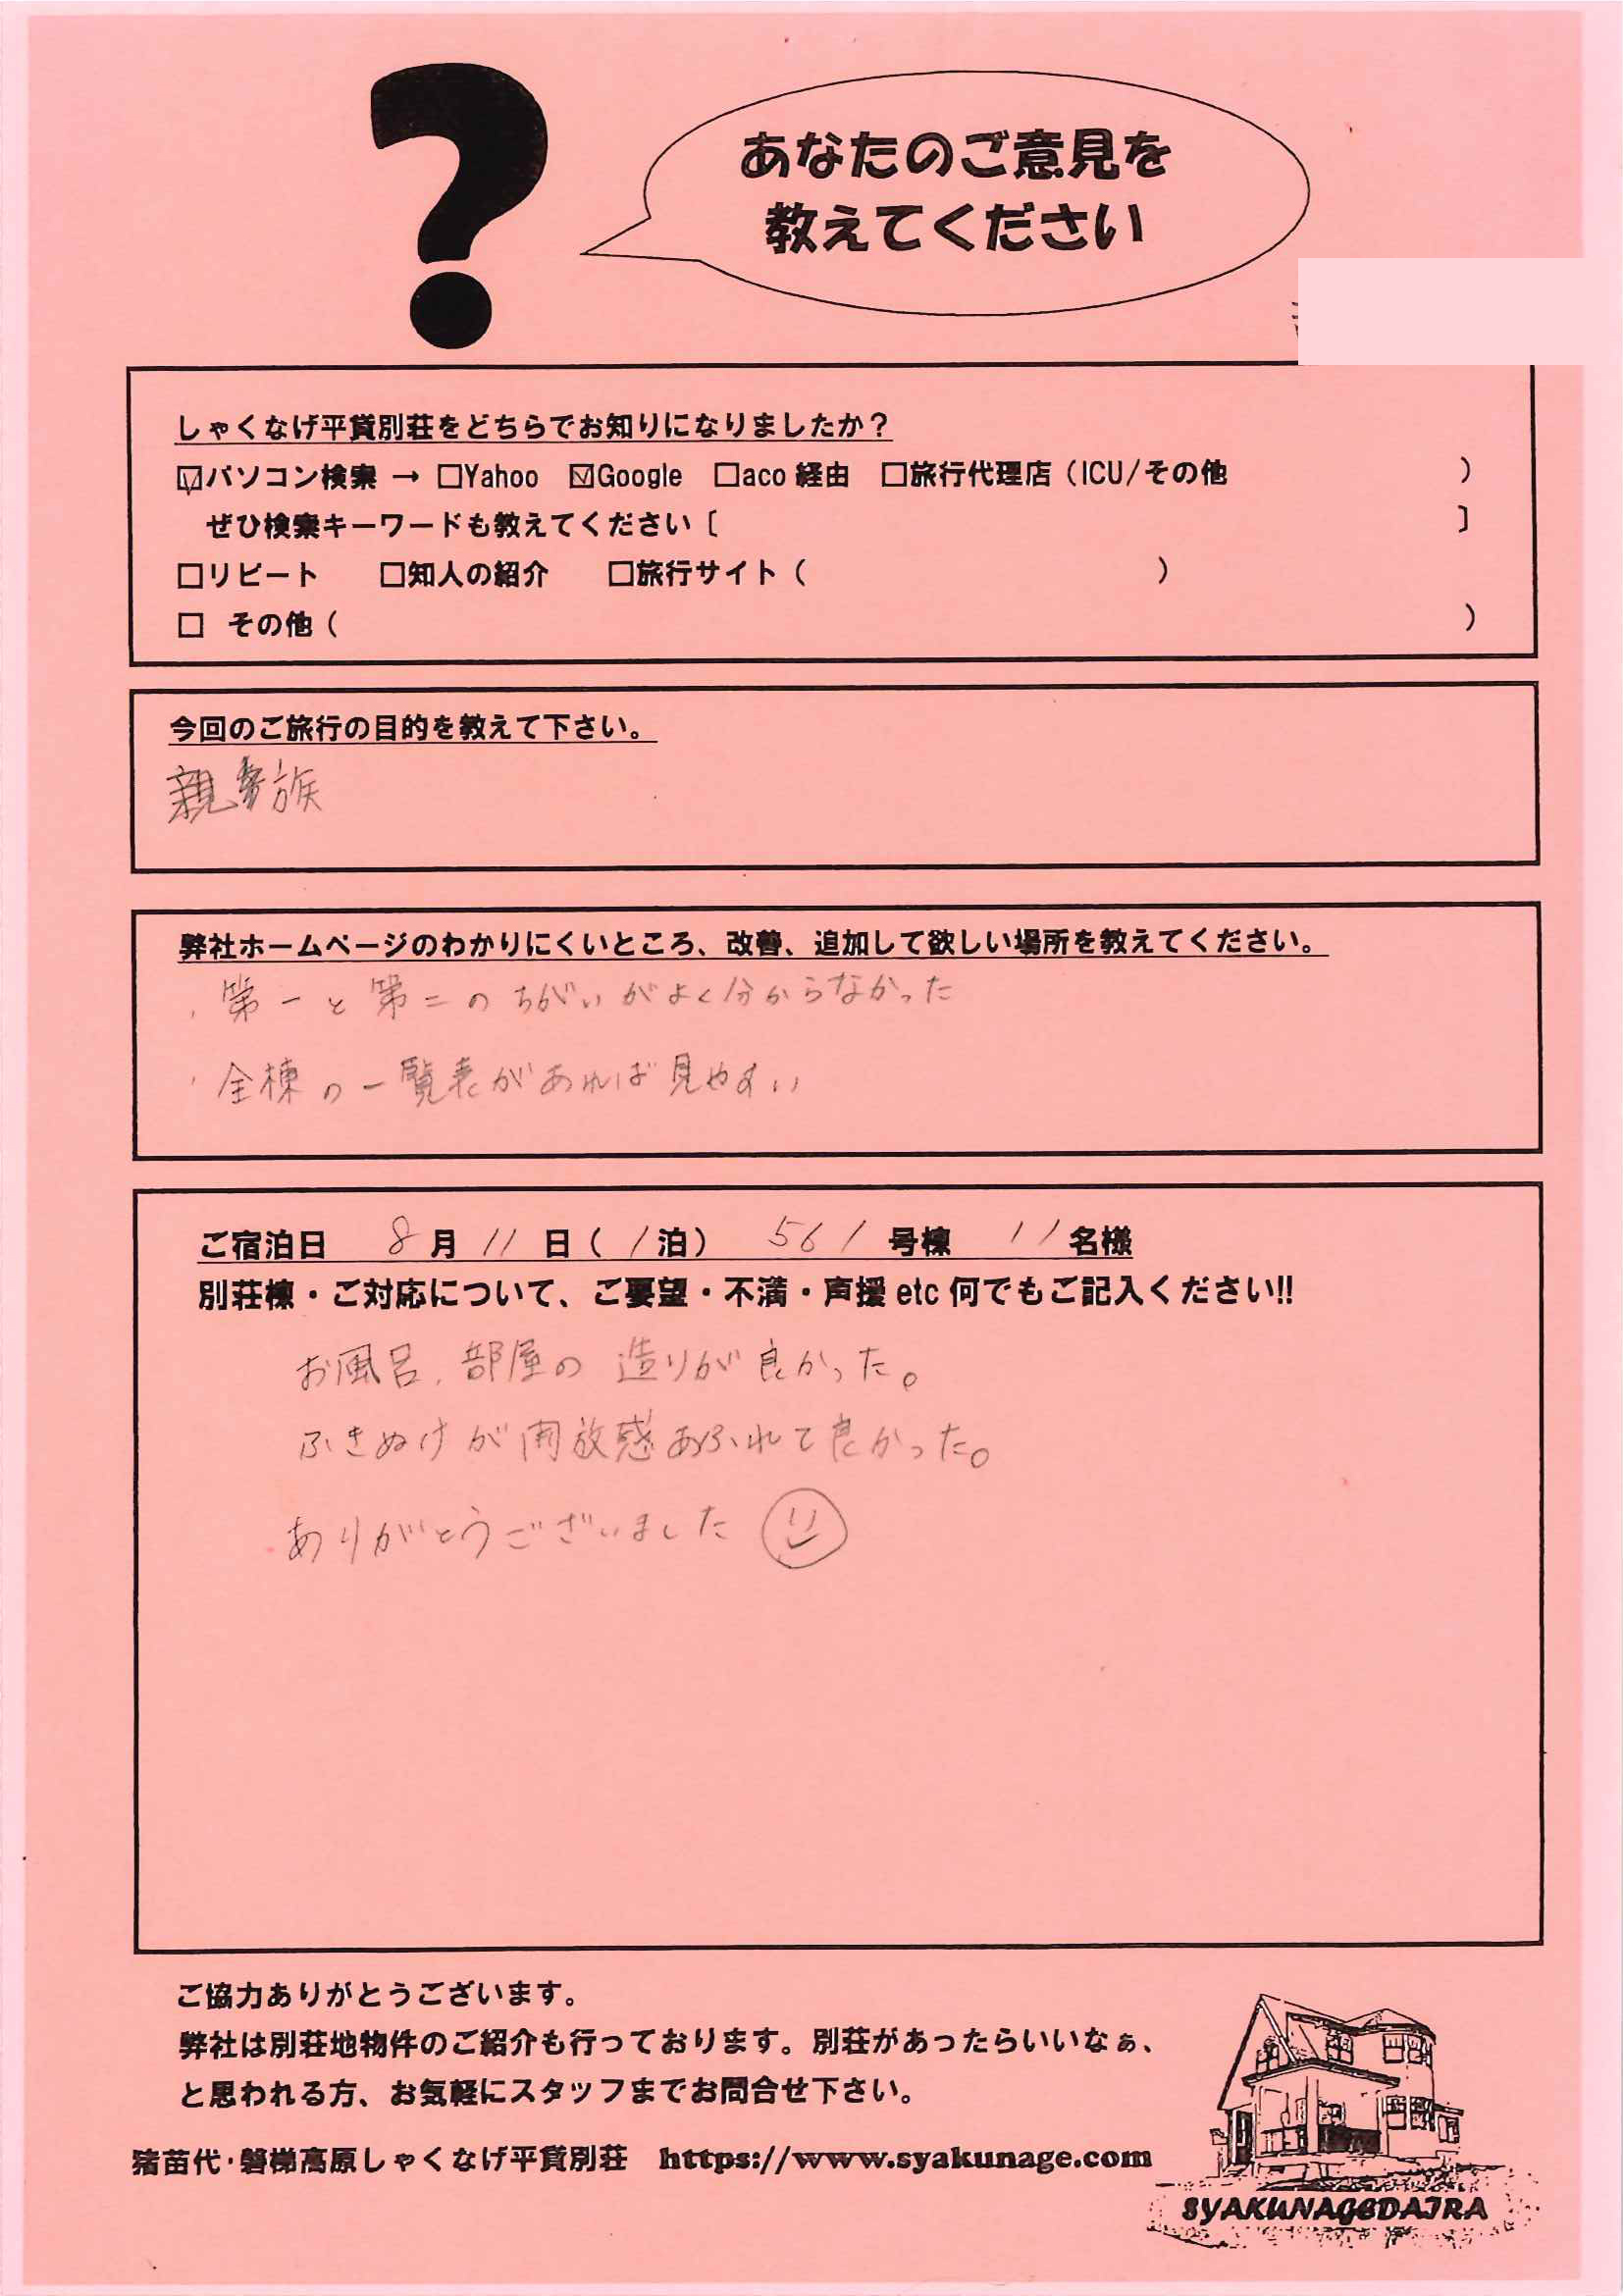 あなたのご意見を
教えてください
しゃくなげ平貸別荘をどちらでお知りになりましたか？
☑パソコン検索 → □Yahoo ☑Google □aco 経由 □旅行代理店（ICU/その他 ）
ぜひ検索キーワードも教えてください〔 〕
□リピート □知人の紹介 □旅行サイト（ ）
□ その他（ ）
今回のご旅行の目的を教えて下さい。
親族
弊社ホームページのわかりにくいところ、改善、追加して欲しい場所を教えてください。
・第一と第二のちがいがよく分からなかった
・全棟の一覧表があれば見やすい
ご宿泊日 8月11日（1泊） 561号棟 11名様
別荘棟・ご対応について、ご要望・不満・声援 etc 何でもご記入ください!!
お風呂、部屋の造りが良かった。
ふきぬけが開放感あふれて良かった。
ありがとうございました
ご協力ありがとうございます。
弊社は別荘地物件のご紹介も行っております。別荘があったらいいなぁ、
と思われる方、お気軽にスタッフまでお問合せ下さい。
猪苗代・磐梯高原しゃくなげ平貸別荘 https://www.syakunage.com
SYAKUNAGEDAIRA